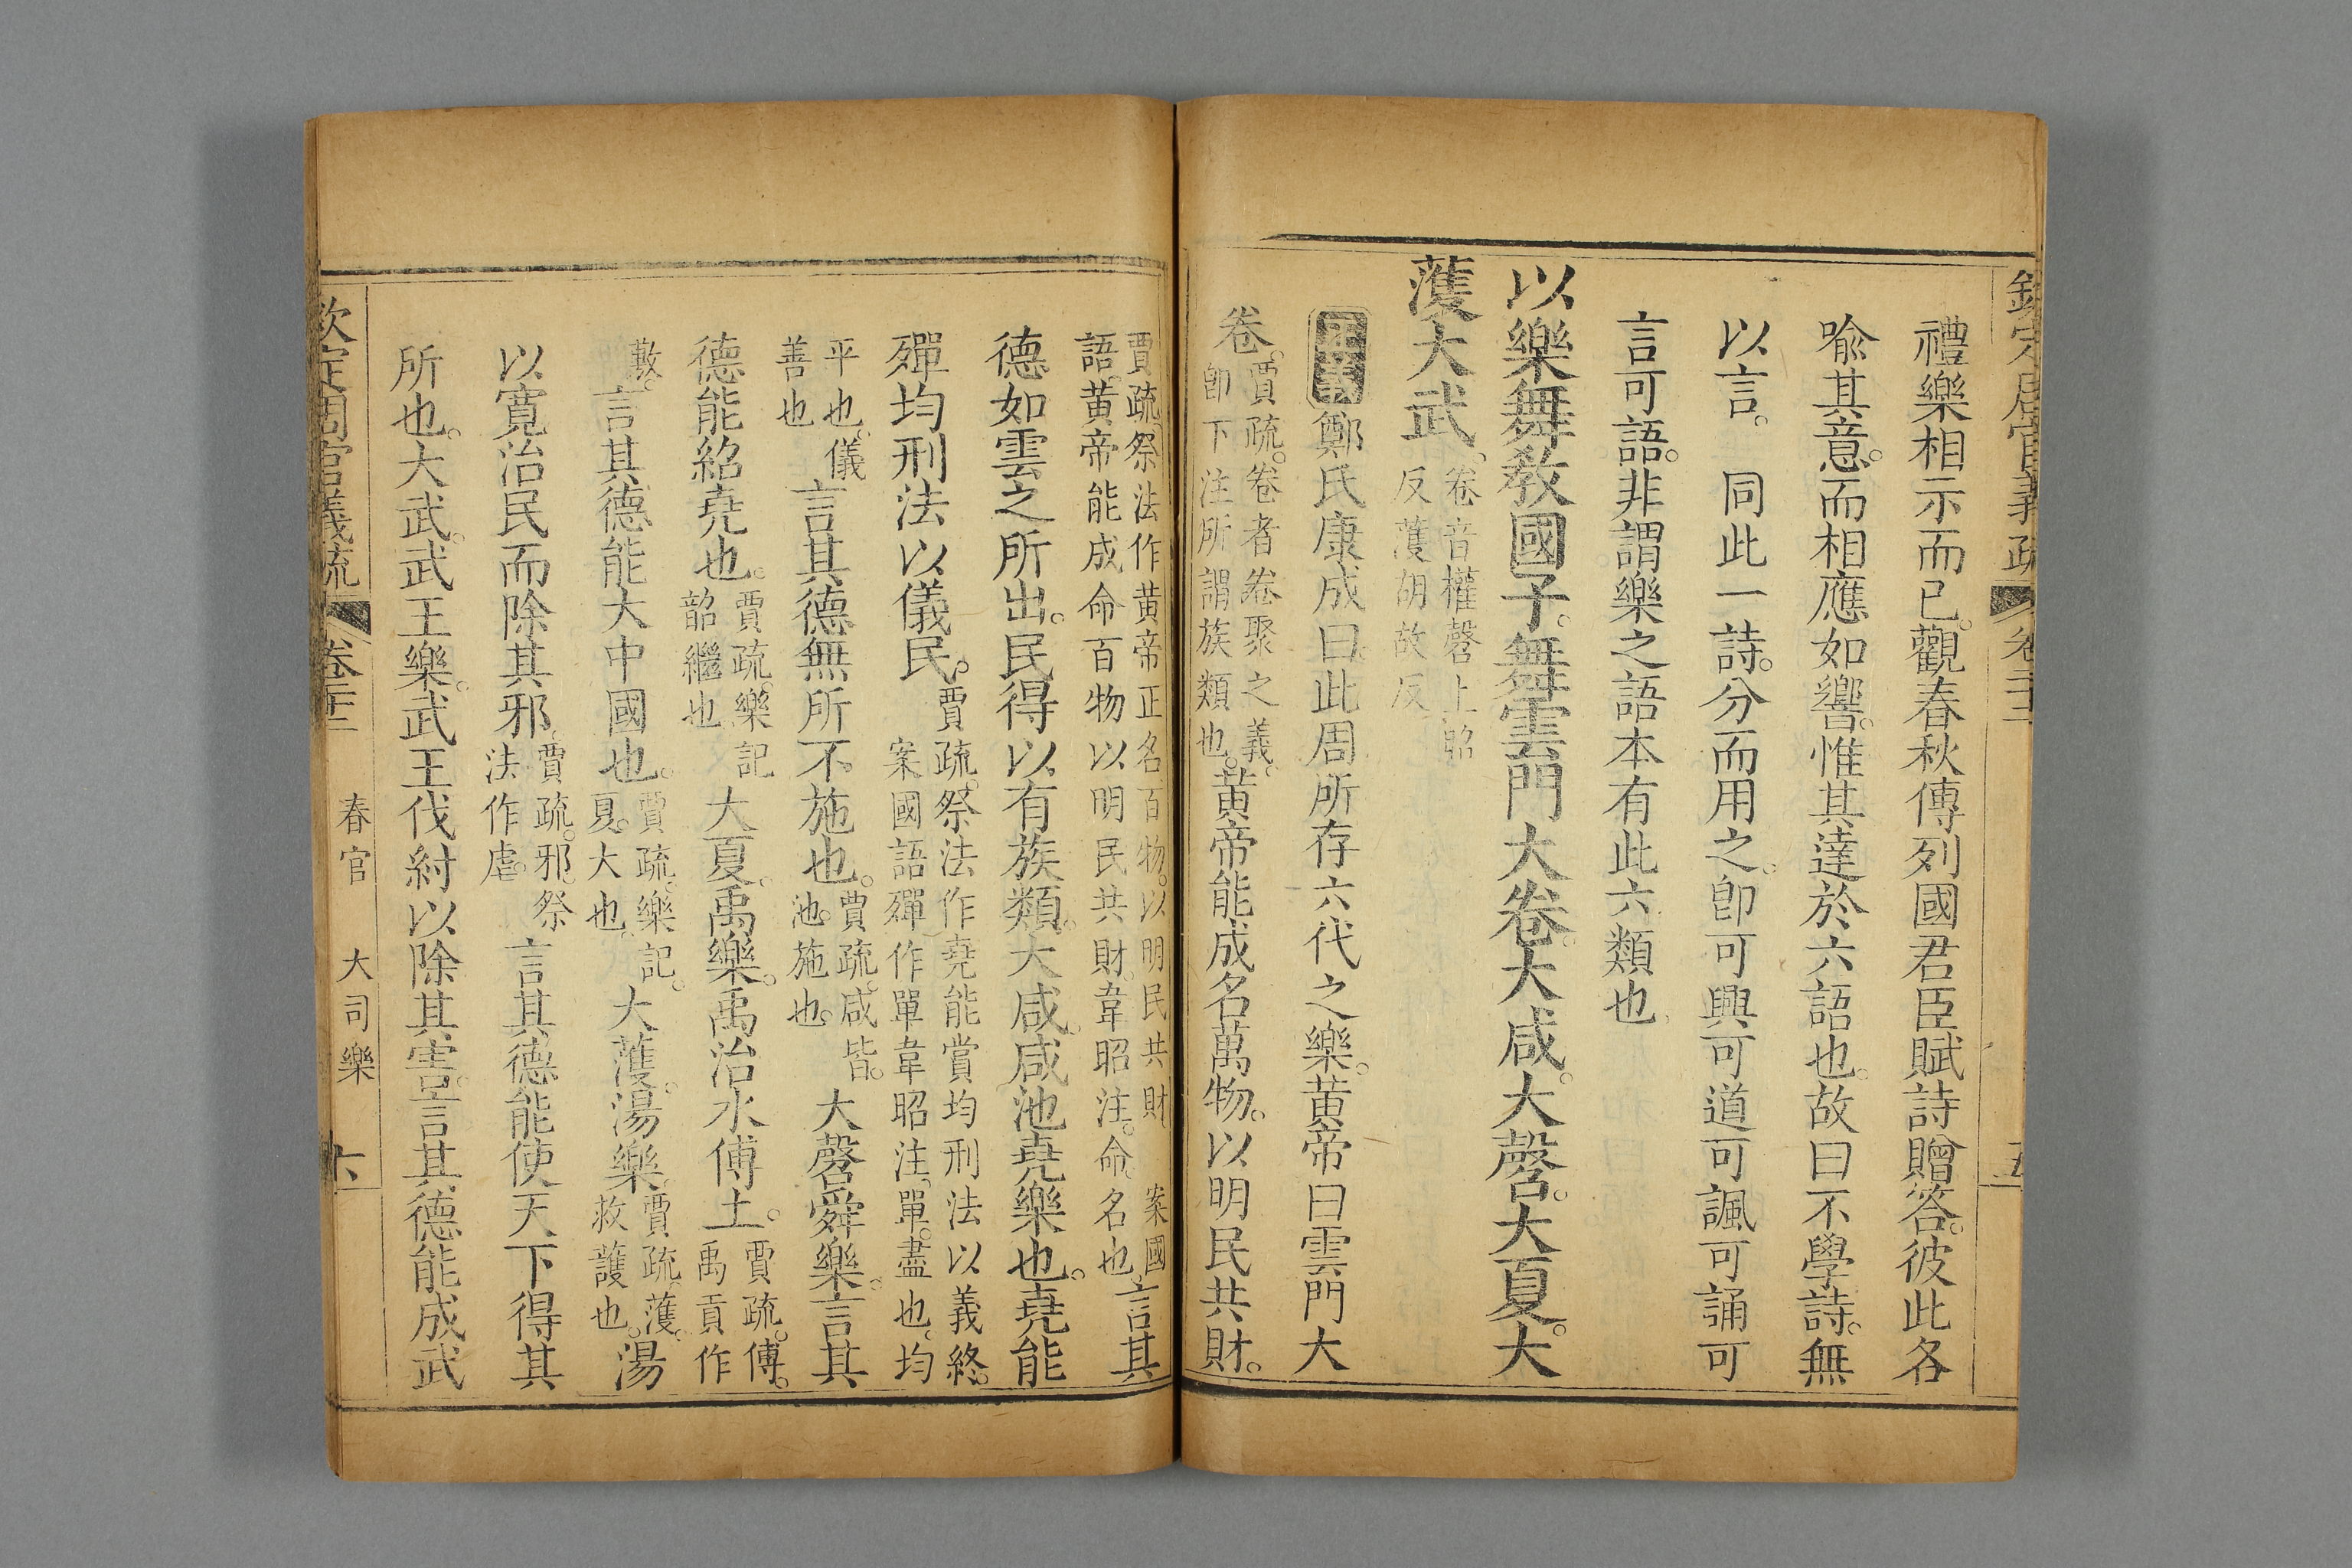 欽定周官義疏 卷二十二 五
禮樂相示而已。觀春秋傳列國君臣賦詩贈答。彼此各
喩其意。而相應如響。惟其達於六語也。故曰不學詩。無
以言。 同此一詩。分而用之。卽可興可道可諷可誦可
言可語。非謂樂之語本有此六類也
以樂舞敎國子。舞雲門大卷。大咸。大㲈。大夏。大
濩大武。
卷音權㲈上昭
反濩胡故反
正義 鄭氏康成曰此周所存六代之樂。黃帝曰雲門大
卷。
賈疏。卷者卷聚之義。
卽下注所謂族類也。
黃帝能成名萬物。以明民共財。
賈疏祭法作黃帝正名百物。以明民共財 案國
語。黃帝能成命百物以明民共財。韋昭注。命名也。
言其
德如雲之所出。民得以有族類。大咸。咸池堯樂也。堯能
殫均刑法以儀民。
賈疏。祭法作堯能賞均刑法以義終。
案國語殫作單韋昭注。單。盡也。均
平也。儀
善也
言其德無所不施也。
賈疏。咸皆。
池。施也。
大㲈舜樂。言其
德能紹堯也。
賈疏。樂記
韶繼也
大夏。禹樂。禹治水傅土。
賈疏。傅。
禹貢作
敷。
言其德能大中國也。
賈疏。樂記。
夏。大也。
大濩。湯樂。
賈疏。濩。
救護也。
湯
以寬治民而除其邪。
賈疏。邪。祭
法作虐。
言其德能使天下得其
所也。大武。武王樂。武王伐紂以除其害。言其德能成武
欽定周官義疏 卷二十二 春官 大司樂 六